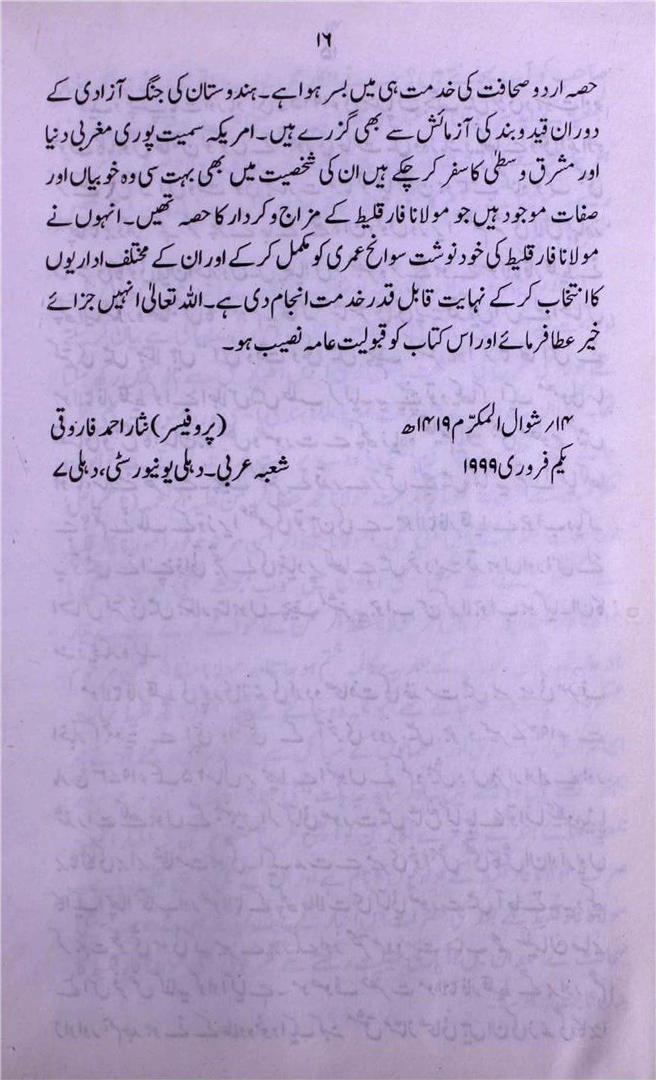 ۱۶
حصہ اردو صحافت کی خدمت ہی میں بسر ہوا ہے۔ ہندوستان کی جنگ آزادی کے
دوران قید و بند کی آزمائش سے بھی گزرے ہیں۔ امریکہ سمیت پوری مغربی دنیا
اور مشرق وسطی کا سفر کر چکے ہیں ان کی شخصیت میں بھی بہت سی وہ خوبیاں اور
صفات موجود ہیں جو مولانا فارقلیط کے مزاج و کردار کا حصہ تھیں۔ انہوں نے
مولانا فارقلیط کی خود نوشت سوانح عمری کو مکمل کر کے اور ان کے مختلف اداریوں
کا انتخاب کر کے نہایت قابل قدر خدمت انجام دی ہے۔ اللہ تعالیٰ انہیں جزائے
خیر عطا فرمائے اور اس کتاب کو قبولیت عامہ نصیب ہو۔
۱۴؍ شوال المکرّم ۱۴۱۹ھ (پروفیسر) نثار احمد فاروقی
یکم فروری ۱۹۹۹ شعبہ عربی۔ دہلی یونیورسٹی، دہلی ۷